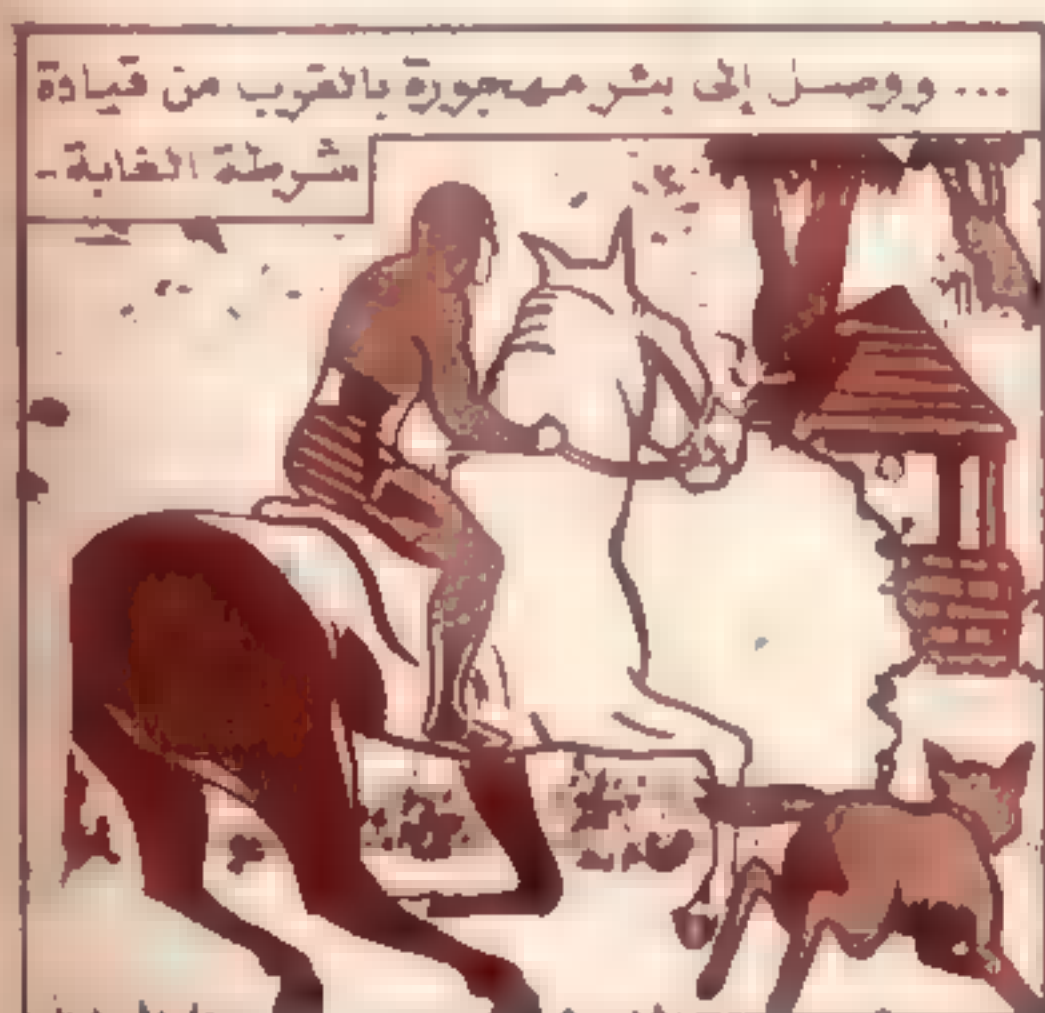 ... ووصل إلى بئر مهجورة بالقرب من قيادة
شرطة الغابة -